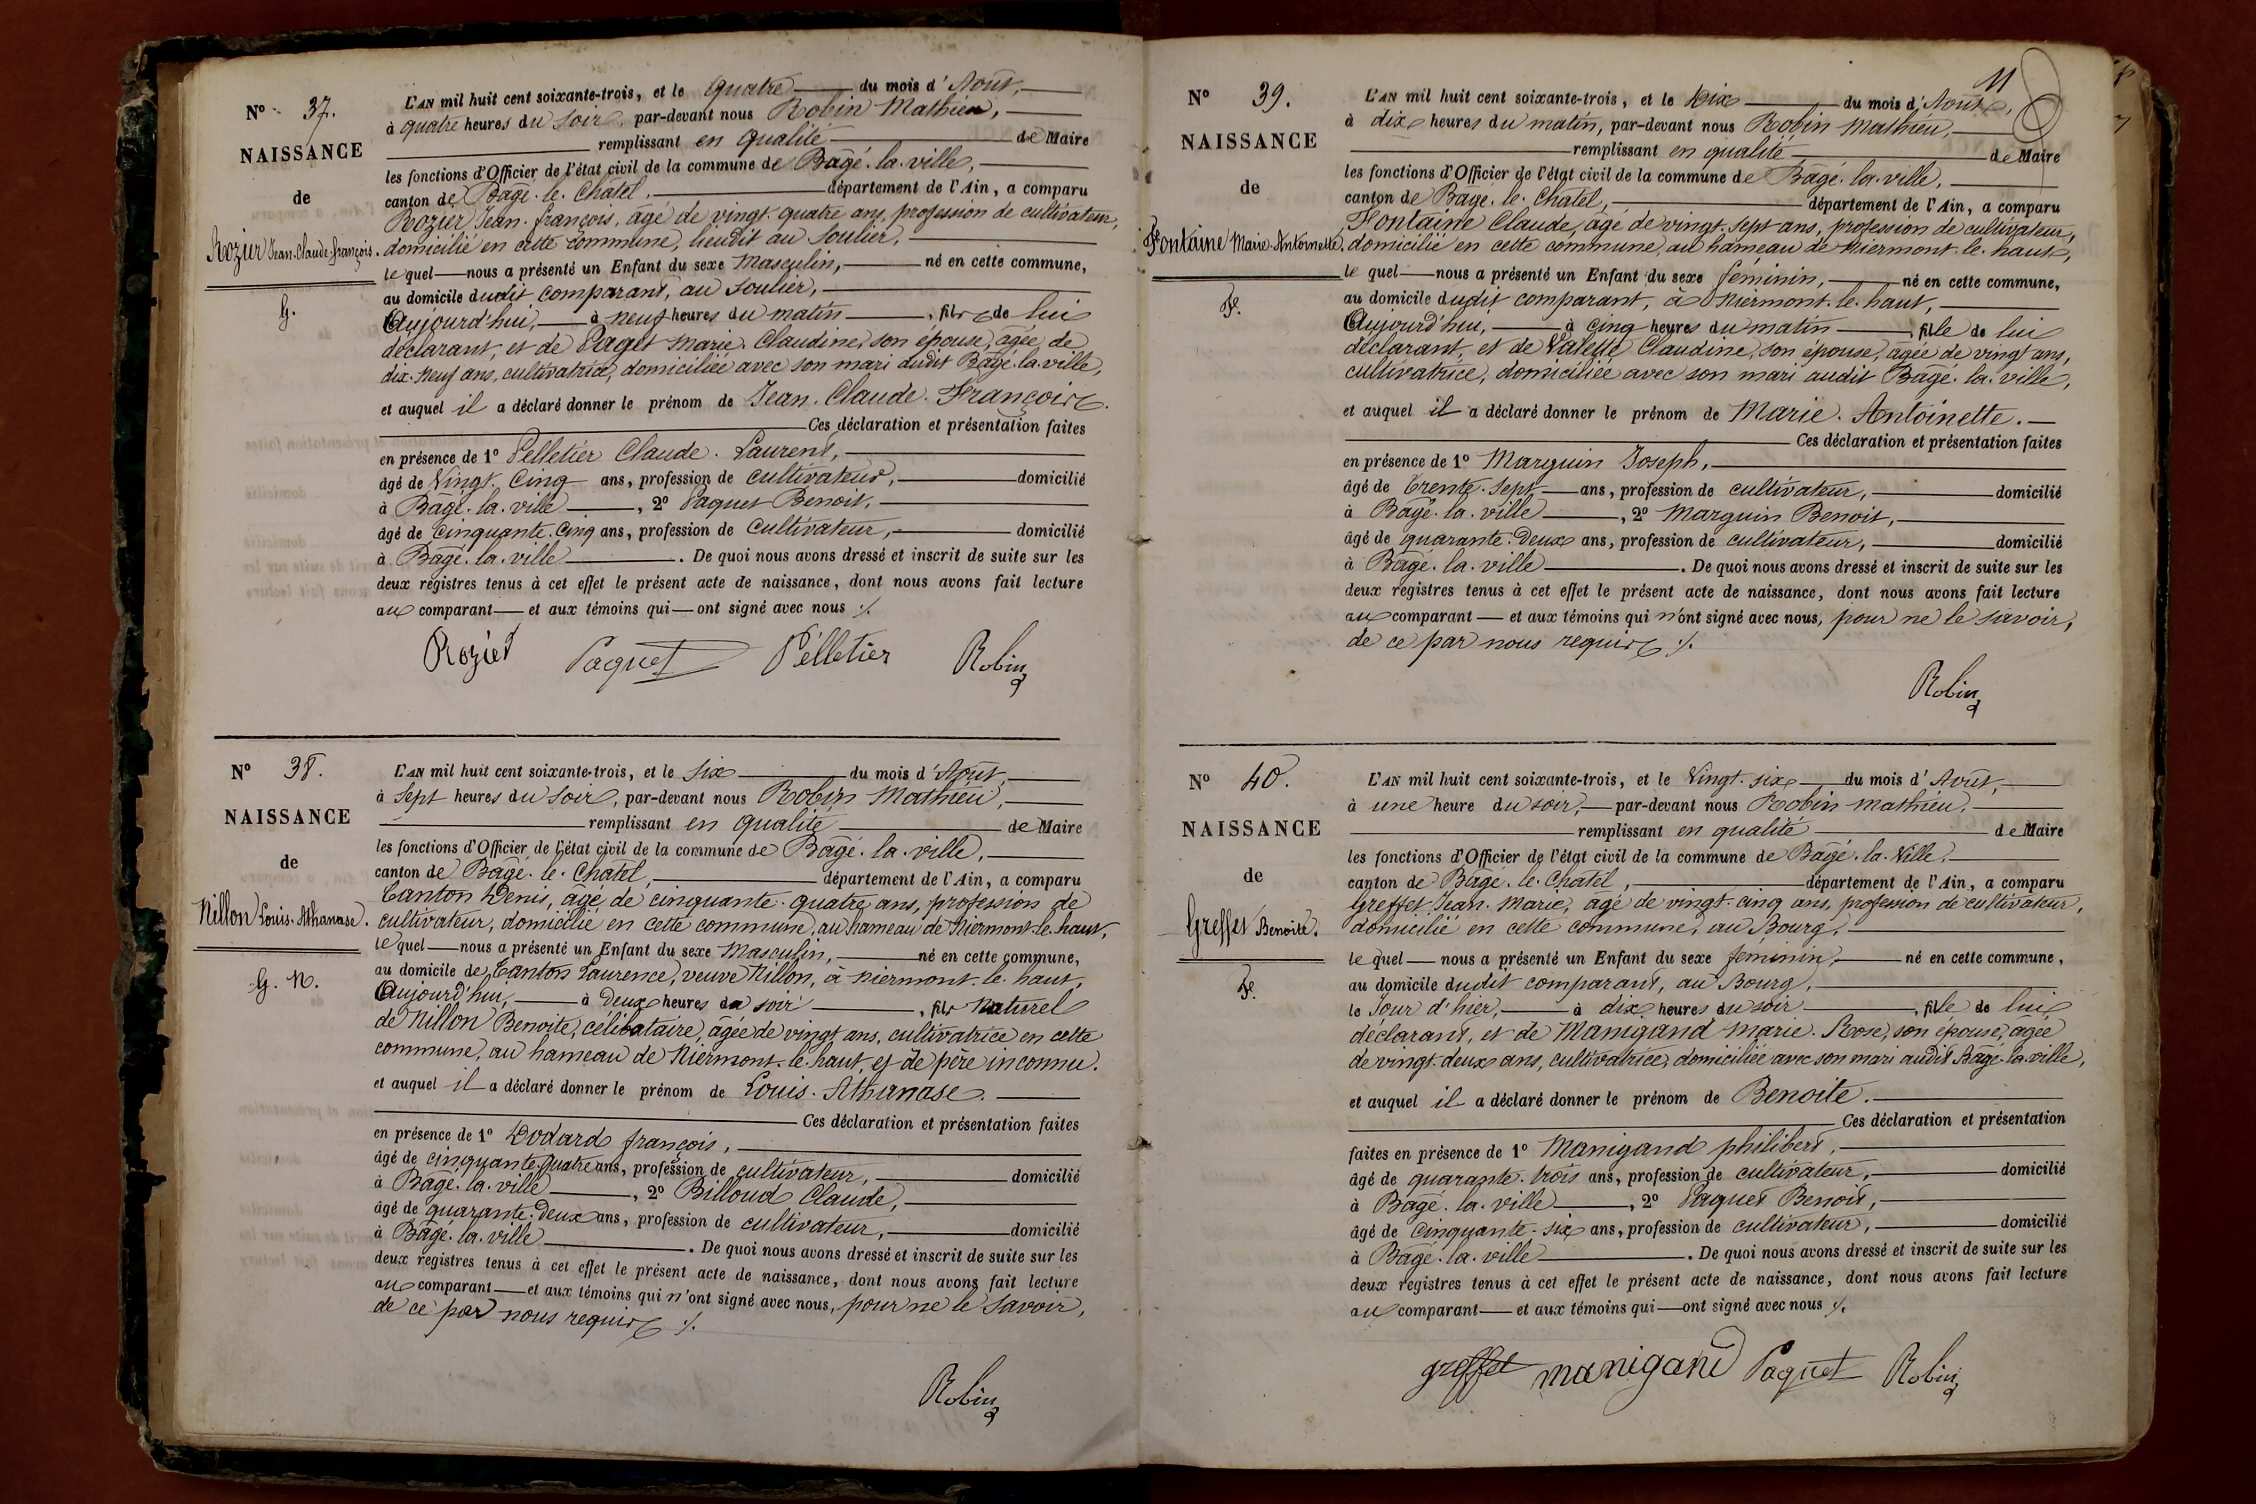 N° 37.
NAISSANCE
de
Rozier Jean-Claude-françois.
G.
L'AN mil huit cent soixante-trois, et le quatre du mois d'Août,
à quatre heures du soir, par-devant nous Robin Mathieu,
remplissant en qualité de Maire
les fonctions d'Officier de l'état civil de la commune de Bâgé-la-ville,
canton de Bâgé-le-Châtel, département de l'Ain, a comparu
Rozier Jean-françois, âgé de vingt-quatre ans, profession de cultivateur,
domicilié en cette commune, lieudit au Soulier,
le quel nous a présenté un Enfant du sexe Masculin, né en cette commune,
au domicile dudit comparant, au Soulier,
Aujourd'hui, à neuf heures du matin, fils de lui
déclarant, et de Paget Marie-Claudine, son épouse, âgée de
dix-neuf ans, cultivatrice, domiciliée avec son mari audit Bâgé-la-ville,
et auquel il a déclaré donner le prénom de Jean-Claude-François.
Ces déclaration et présentation faites
en présence de 1° Pelletier Claude-Laurent,
âgé de Vingt-Cinq ans, profession de cultivateur, domicilié
à Bâgé-la-ville, 2° Paquet Benoit,
âgé de Cinquante-Cinq ans, profession de Cultivateur, domicilié
à Bâgé-la-ville. De quoi nous avons dressé et inscrit de suite sur les
deux registres tenus à cet effet le présent acte de naissance, dont nous avons fait lecture
au comparant et aux témoins qui ont signé avec nous ./.
Rozier Paquet Pelletier Robin
N° 38.
NAISSANCE
de
Nillon Louis-Athanase.
G. N.
L'AN mil huit cent soixante-trois, et le six du mois d'Août,
à Sept heures du soir, par-devant nous Robin Mathieu,
remplissant en qualité de Maire
les fonctions d'Officier de l'état civil de la commune de Bâgé-la-ville,
canton de Bâgé-le-Châtel, département de l'Ain, a comparu
Canton Denis, âgé de cinquante-quatre ans, profession de
cultivateur, domicilié en cette commune, au hameau de Niermont-le-haut,
le quel nous a présenté un Enfant du sexe Masculin, né en cette commune,
au domicile de Canton Laurence, veuve Nillon, à Niermont-le-haut,
Aujourd'hui, à Deux heures du soir, fils naturel
de Nillon Benoite, célibataire, âgée de vingt ans, cultivatrice en cette
commune, au hameau de Niermont-le-haut, et de père inconnu.
et auquel il a déclaré donner le prénom de Louis-Athanase.
Ces déclaration et présentation faites
en présence de 1° Dodard françois,
âgé de cinquante-quatre ans, profession de cultivateur, domicilié
à Bâgé-la-ville, 2° Billoud Claude,
âgé de quarante-deux ans, profession de cultivateur, domicilié
à Bâgé-la-ville. De quoi nous avons dressé et inscrit de suite sur les
deux registres tenus à cet effet le présent acte de naissance, dont nous avons fait lecture
au comparant et aux témoins qui n'ont signé avec nous, pour ne le savoir,
de ce par nous requis ./.
Robin
11
N° 39.
NAISSANCE
de
Fontaine Marie-Antoinette.
Fe.
L'AN mil huit cent soixante-trois, et le Dix du mois d'Août,
à dix heures du matin, par-devant nous Robin Mathieu,
remplissant en qualité de Maire
les fonctions d'Officier de l'état civil de la commune de Bâgé-la-ville,
canton de Bâgé-le-Châtel, département de l'Ain, a comparu
Fontaine Claude, âgé de vingt-sept ans, profession de cultivateur,
domicilié en cette commune, au hameau de Niermont-le-haut,
le quel nous a présenté un Enfant du sexe féminin, né en cette commune,
au domicile dudit comparant, à Niermont-le-haut,
Aujourd'hui, à Cinq heures du matin, fille de lui
déclarant, et de Valette Claudine, son épouse, âgée de vingt ans,
cultivatrice, domiciliée avec son mari audit Bâgé-la-ville,
et auquel il a déclaré donner le prénom de Marie-Antoinette.
Ces déclaration et présentation faites
en présence de 1° Marguin Joseph,
âgé de Trente-sept ans, profession de cultivateur, domicilié
à Bâgé-la-ville, 2° Marguin Benoit,
âgé de quarante-deux ans, profession de cultivateur, domicilié
à Bâgé-la-ville. De quoi nous avons dressé et inscrit de suite sur les
deux registres tenus à cet effet le présent acte de naissance, dont nous avons fait lecture
au comparant et aux témoins qui n'ont signé avec nous, pour ne le savoir,
de ce par nous requis ./.
Robin
N° 40.
NAISSANCE
de
Greffet Benoite.
Fe.
L'AN mil huit cent soixante-trois, et le Vingt-six du mois d'Août,
à une heure du soir, par-devant nous Robin Mathieu,
remplissant en qualité de Maire
les fonctions d'Officier de l'état civil de la commune de Bâgé-la-Ville,
canton de Bâgé-le-Châtel, département de l'Ain, a comparu
Greffet Jean-Marie, âgé de vingt-cinq ans, profession de cultivateur,
domicilié en cette commune, au Bourg,
le quel nous a présenté un Enfant du sexe féminin, né en cette commune,
au domicile dudit comparant, au Bourg,
le Jour d'hier, à dix heures du soir, fille de lui
déclarant, et de Manigand Marie-Rose, son épouse, âgée
de vingt-deux ans, cultivatrice, domiciliée avec son mari audit Bâgé-la-ville,
et auquel il a déclaré donner le prénom de Benoite.
Ces déclaration et présentation
faites en présence de 1° Manigand philibert,
âgé de quarante-trois ans, profession de cultivateur, domicilié
à Bâgé-la-ville, 2° Paquet Benoit,
âgé de Cinquante-six ans, profession de cultivateur, domicilié
à Bâgé-la-ville. De quoi nous avons dressé et inscrit de suite sur les
deux registres tenus à cet effet le présent acte de naissance, dont nous avons fait lecture
au comparant et aux témoins qui ont signé avec nous ./.
greffet manigand Paquet Robin